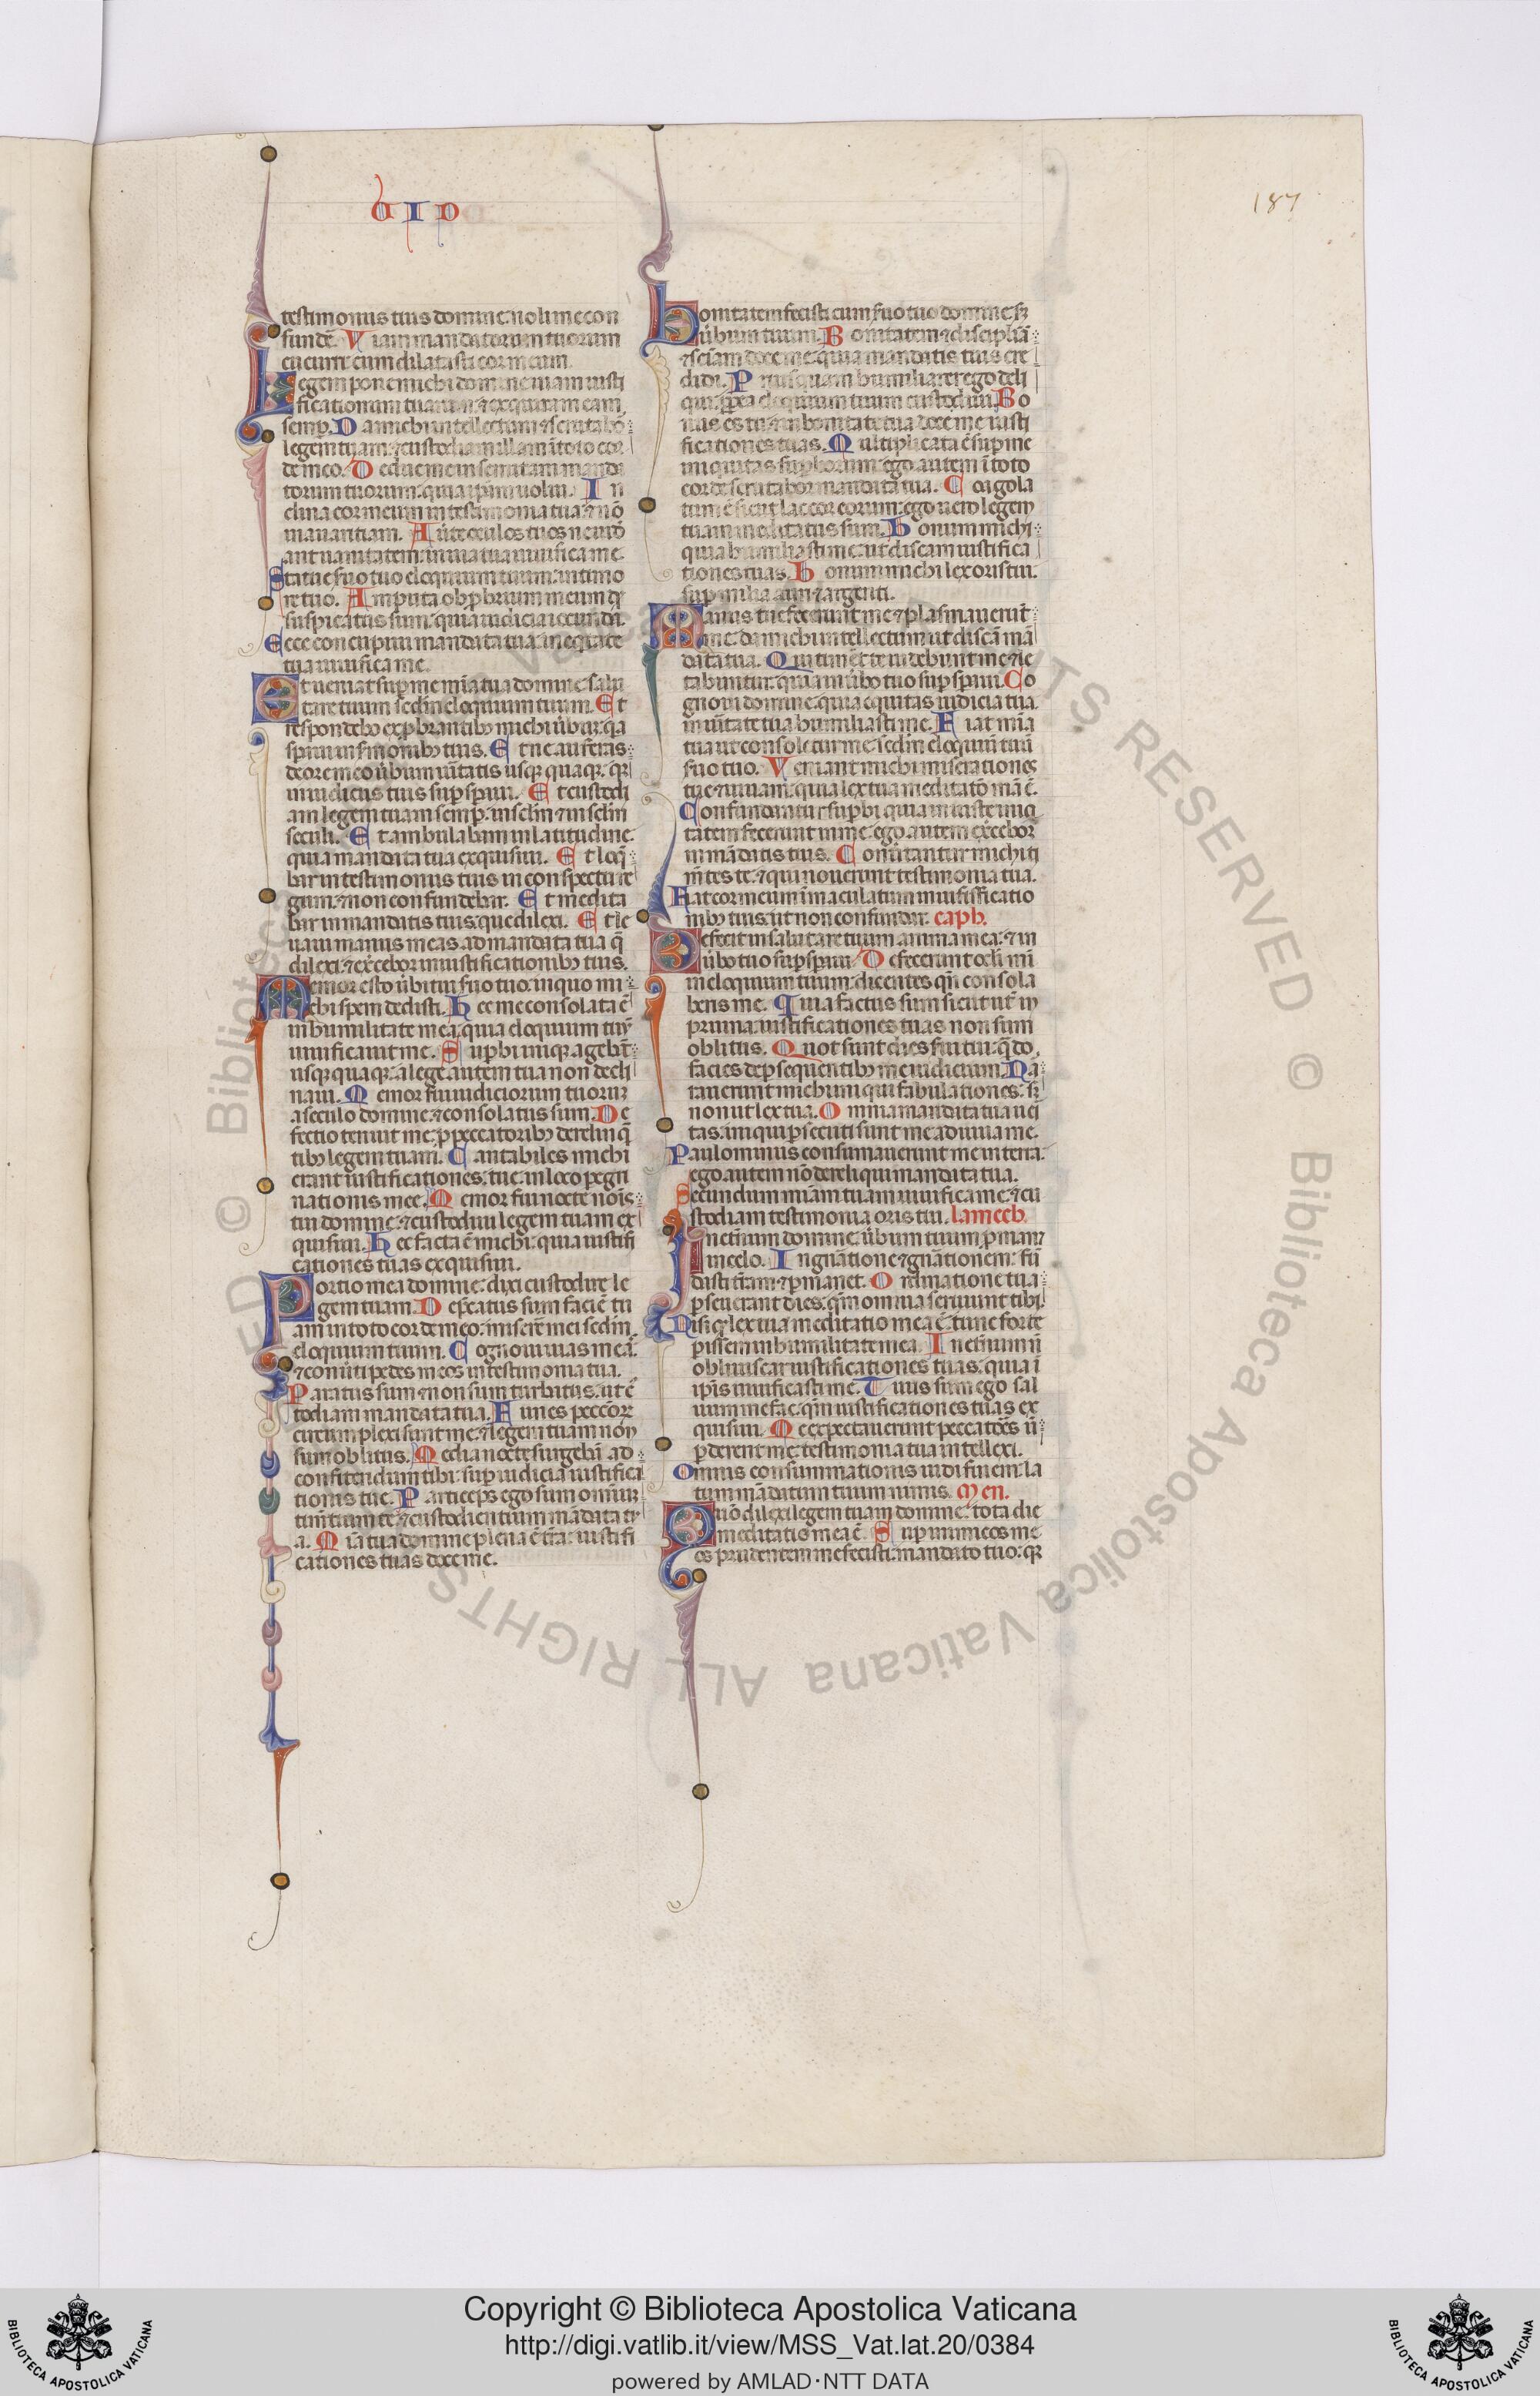 D I D
187
testimoniis tuis domine noli me con
fundẽ. V iam mandatorum tuorum
cucurri: cum dilatasti cor meum.
Legem pone michi domine uiam iusti
ficationum tuarum: ⁊ exquiram eam
semp̃. D a michi intellectum ⁊ scrutabor
legem tuam: ⁊ custodiam illam ĩ toto cor
de meo. D educ me in semitam manda
torum tuorum: quia ip̃am uolui. I n
clina cor meum in testimonia tua: ⁊ nõ
in auaritiam. A ũte oculos tuos ne uid̃
ant uanitatem: in uia tua uiuifica me.
Statue ẜuo tuo eloquium tuum: in timo
re tuo. A mputa obp̃brium meum qđ
suspicatus sum: quia iudicia tua iocunda.
Ecce concupiui mandata tua: in equitate
tua uiuifica me.
Et ueniat suꝑ me mĩa tua domine: salu
tare tuum scđm eloquium tuum. E t
respondebo exp̃brantibꝫ michi ũbum: qia
speraui in ẜmonibꝫ tuis. E t ne auferas
de ore meo ũbum ũitatis usqꝫ quaqꝫ: qꝛ
in iudiciis tuis suꝑsperaui. E t custodi
am legem tuam semp̃: in sclm ⁊ in sclm
seculi. E t ambulabam in latitudine:
quia mandata tua exquisiui. E t loq̃
bar in testimoniis tuis in conspectu re
gum: ⁊ non confundebar. E t medita
bar in mandatis tuis: que dilexi. E t le
uaui manus meas ad mandata tua q̃
dilexi: ⁊ exercebor in iustificationibꝫ tuis.
Memor esto ũbi tui ẜuo tuo: in quo mi
chi spem dedisti. H ec me consolata ẽ
in humilitate mea: quia eloquium tuũ
uiuificauit me. S up̃bi inique agebãt
usqꝫ quaqꝫ: a lege autem tua non decli
naui. M emor fui iudiciorum tuoruꝫ
a seculo domine: ⁊ consolatus sum. De
fectio tenuit me: p̃ peccatoribꝫ derelinq̃
tibꝫ legem tuam. C antabiles michi
erant iustificationes tue: in loco ꝑegri
nationis mee. M emor fui nocte nõis
tui domine: ⁊ custodiui legem tuam ex
quisiui. H ec facta ẽ michi: quia iustifi
cationes tuas exquisiui.
Portio mea domine: dixi custodire le
gem tuam. D ep̃catus sum faciẽ tu
am in toto corde meo: miserẽ mei scđm
eloquium tuum. C ogitaui uias meas:
⁊ conũti pedes meos in testimonia tua.
Paratus sum ⁊ non sum turbatus: ut c̃
todiam mandata tua. F unes peccõꝝ
circumplexi sunt me: ⁊ legem tuam non
sum oblitus. M edia nocte surgebã ad
confitendum tibi: suꝑ iudicia iustifica
tionis tue. P articeps ego sum omniuꝫ
timentium te: ⁊ custodientium mãdata tu
a. M ĩa tua domine plena ẽ tr̃a: iustifi
cationes tuas doce me.
Bonitatem fecisti cum ẜuo tuo domine: sꝫ
ũbum tuum. B onitatem ⁊ disciplinã
⁊ sciam doce me: quia mandatis tuis cre
didi. P riusquam humiliarer ego deli
qui: p̃pterea eloquium tuum custodiui. Bo
nus es tu: ⁊ in bonitate tua doce me iusti
ficationes tuas. M ultiplicata ẽ suꝑ me
iniquitas suꝑborum: ego autem ĩ toto
corde scrutabor mandata tua. C oagola
tum ẽ sicut lac cor eorum: ego uero legem
tuam meditatus sum. B onum michi
quia humiliasti me: ut discam iustifica
tiones tuas. B onum michi lex oris tui:
suꝑ milia auri ⁊ argenti.
Manus tue fecerunt me ⁊ plasmauerũt
me: da michi intellectum ut discã mã
data tua. Q ui timẽt te uidebunt me ⁊ le
tabuntur: quia in ũbo tuo suꝑsperaui. Co
gnoui domine quia equitas iudicia tua:
in ũitate tua humiliasti me. F iat mĩa
tua ut consoletur me: scđm eloquiũ tuũ
ẜuo tuo. V eniant michi miserationes
tue ⁊ uiuam: quia lex tua meditatõ mea ẽ.
Confundantur suꝑbi quia iniuste iniqi
tatem fecerunt in me: ego autem exercebor
in mãdatis tuis. C onũtantur michi ti
mẽtes te: ⁊ qui nouerunt testimonia tua.
Fiat cor meum ĩmaculatum in iustificatio
nibꝫ tuis: ut non confundar. caph.
Defecit in salutare tuum anima mea: ⁊ in
ũbo tuo suꝑsperaui. D efecerunt ocli mei
in eloquium tuum: dicentes qñ consola
beris me. Q uia factus sum sicut uter in
pruina: iustificationes tuas non sum
oblitus. Q uot sunt dies ẜui tui: q̃ndo
facies de ꝑsequentibꝫ me iudicium. Na
rrauerunt michi iniqui fabulationes: sꝫ
non ut lex tua. O mnia mandata tua ueri
tas: iniqui ꝑsecuti sunt me adiuua me.
Paulominus consumauerunt me in terra:
ego autem nõ dereliqui mandata tua.
Secundum mĩam tuam uiuifica me: ⁊ cu
stodiam testimonia oris tui. lamech.
In eternum domine: ũbum tuum ꝑmanet
in celo. I n gñatione ⁊ gñationem: fũ
dasti tr̃am ⁊ ꝑmanet. O rdinatione tua
ꝑseuerant dies: qm̃ omnia seruiunt tibi.
Nisi qꝛ lex tua meditatio mea ẽ: tunc forte
ꝑissem in humilitate mea. I n eternum nõ
obliuiscar iustificationes tuas: quia ĩ
ip̃is uiuificasti me. T uus sum ego sal
uum me fac: qm̃ iustificationes tuas ex
quisiui. M e expectauerunt peccatores ut
ꝑderent me: testimonia tua intellexi.
Omnis consummationis uidi finem: la
tum mãdatum tuum nimis. Men.
Quõ dilexi legem tuam domine: tota die
meditatio mea ẽ. S uꝑ inimicos me
os prudentem me fecisti: mandato tuo: qꝛ
© Biblioteca Apostolica Vaticana ALL RIGHTS RESERVED
Copyright © Biblioteca Apostolica Vaticana
http://digi.vatlib.it/view/MSS_Vat.lat.20/0384
powered by AMLAD·NTT DATA
BIBLIOTECA APOSTOLICA VATICANA
BIBLIOTECA APOSTOLICA VATICANA